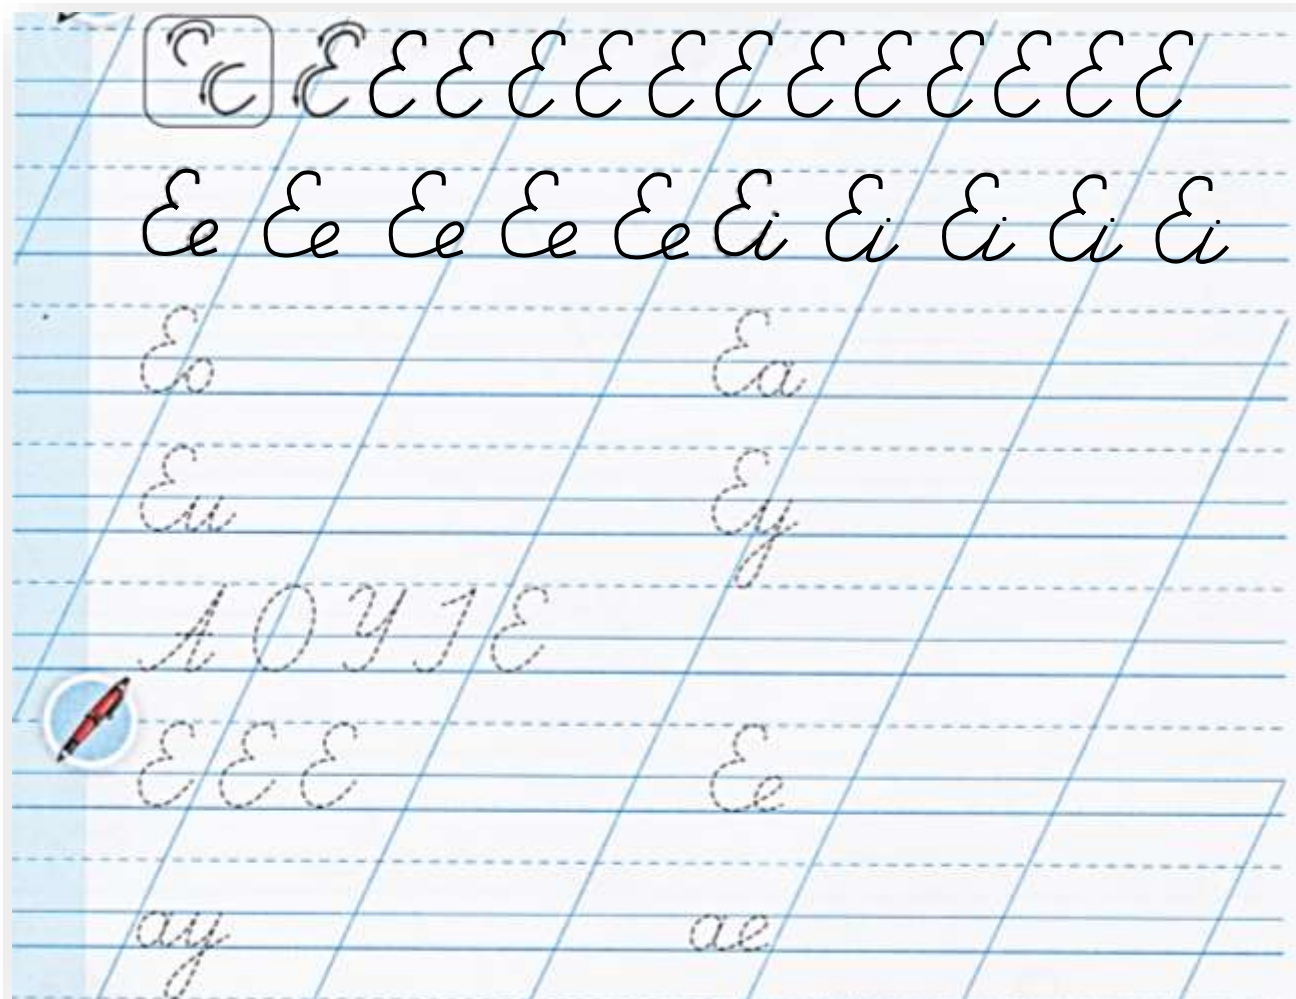 Е Е Е Е Е Е Е Е Е Е Е Е Е
Ее Ее Ее Ее Ее Еі Еі Еі Еі Еі
Ео Еа
Еи Еу
А О У І Е
Е Е Е Ее
ау ае